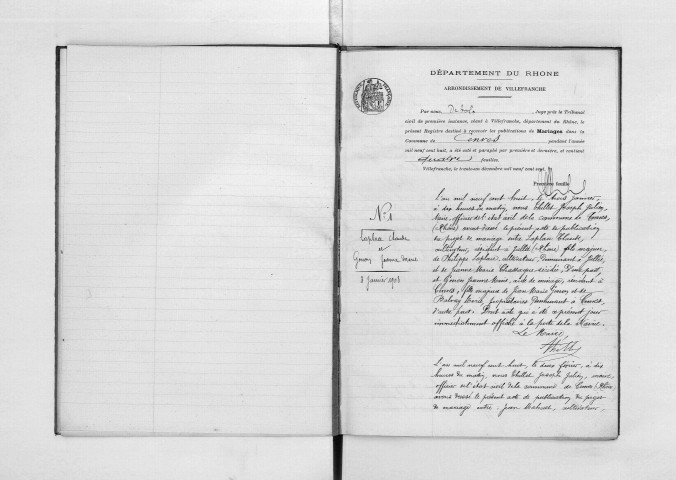 DÉPARTEMENT DU RHONE
ARRONDISSEMENT DE VILLEFRANCHE
Par nous, Juge près le Tribunal
civil de première instance, séant à Villefranche, département du Rhône, le
présent Registre destiné à recevoir les publications de Mariages dans la
Commune de Cenves pendant l'année
mil neuf cent huit, a été coté et paraphé par première et dernière, et contient
quatre feuilles.
Villefranche, le trentième décembre mil neuf cent sept.
Première feuille
N° 1
Laplace Claude
et
Gonon Jeanne Marie
3 Janvier 1908
L'an mil neuf cent huit, le trois janvier,
à dix heures du matin, nous Thillet Joseph Julien,
Maire, officier de l'état civil de la commune de Cenves
(Rhône) avons dressé le présent acte de publication
du projet de mariage entre Laplace Claude,
résidant à Jullié (Rhône) fils majeur
de Philippe Laplace, cultivateur, demeurant à Jullié,
et de Jeanne Marie décédée, D'une part,
et Gonon Jeanne Marie, aide de ménage, résidant à
Cenves, fille majeure de Jean Marie Gonon et de
propriétaires demeurant à Cenves,
d'autre part. Dont acte qui a été à présent jour
immédiatement affiché à la porte de la Mairie.
Le Maire,
L'an mil neuf cent huit, le deux février, à dix
heures du matin, nous Thillet Joseph Julien, maire
officier de l'état civil de la commune de Cenves (Rhône)
avons dressé le présent acte de publication du projet
de mariage entre Jean cultivateur,